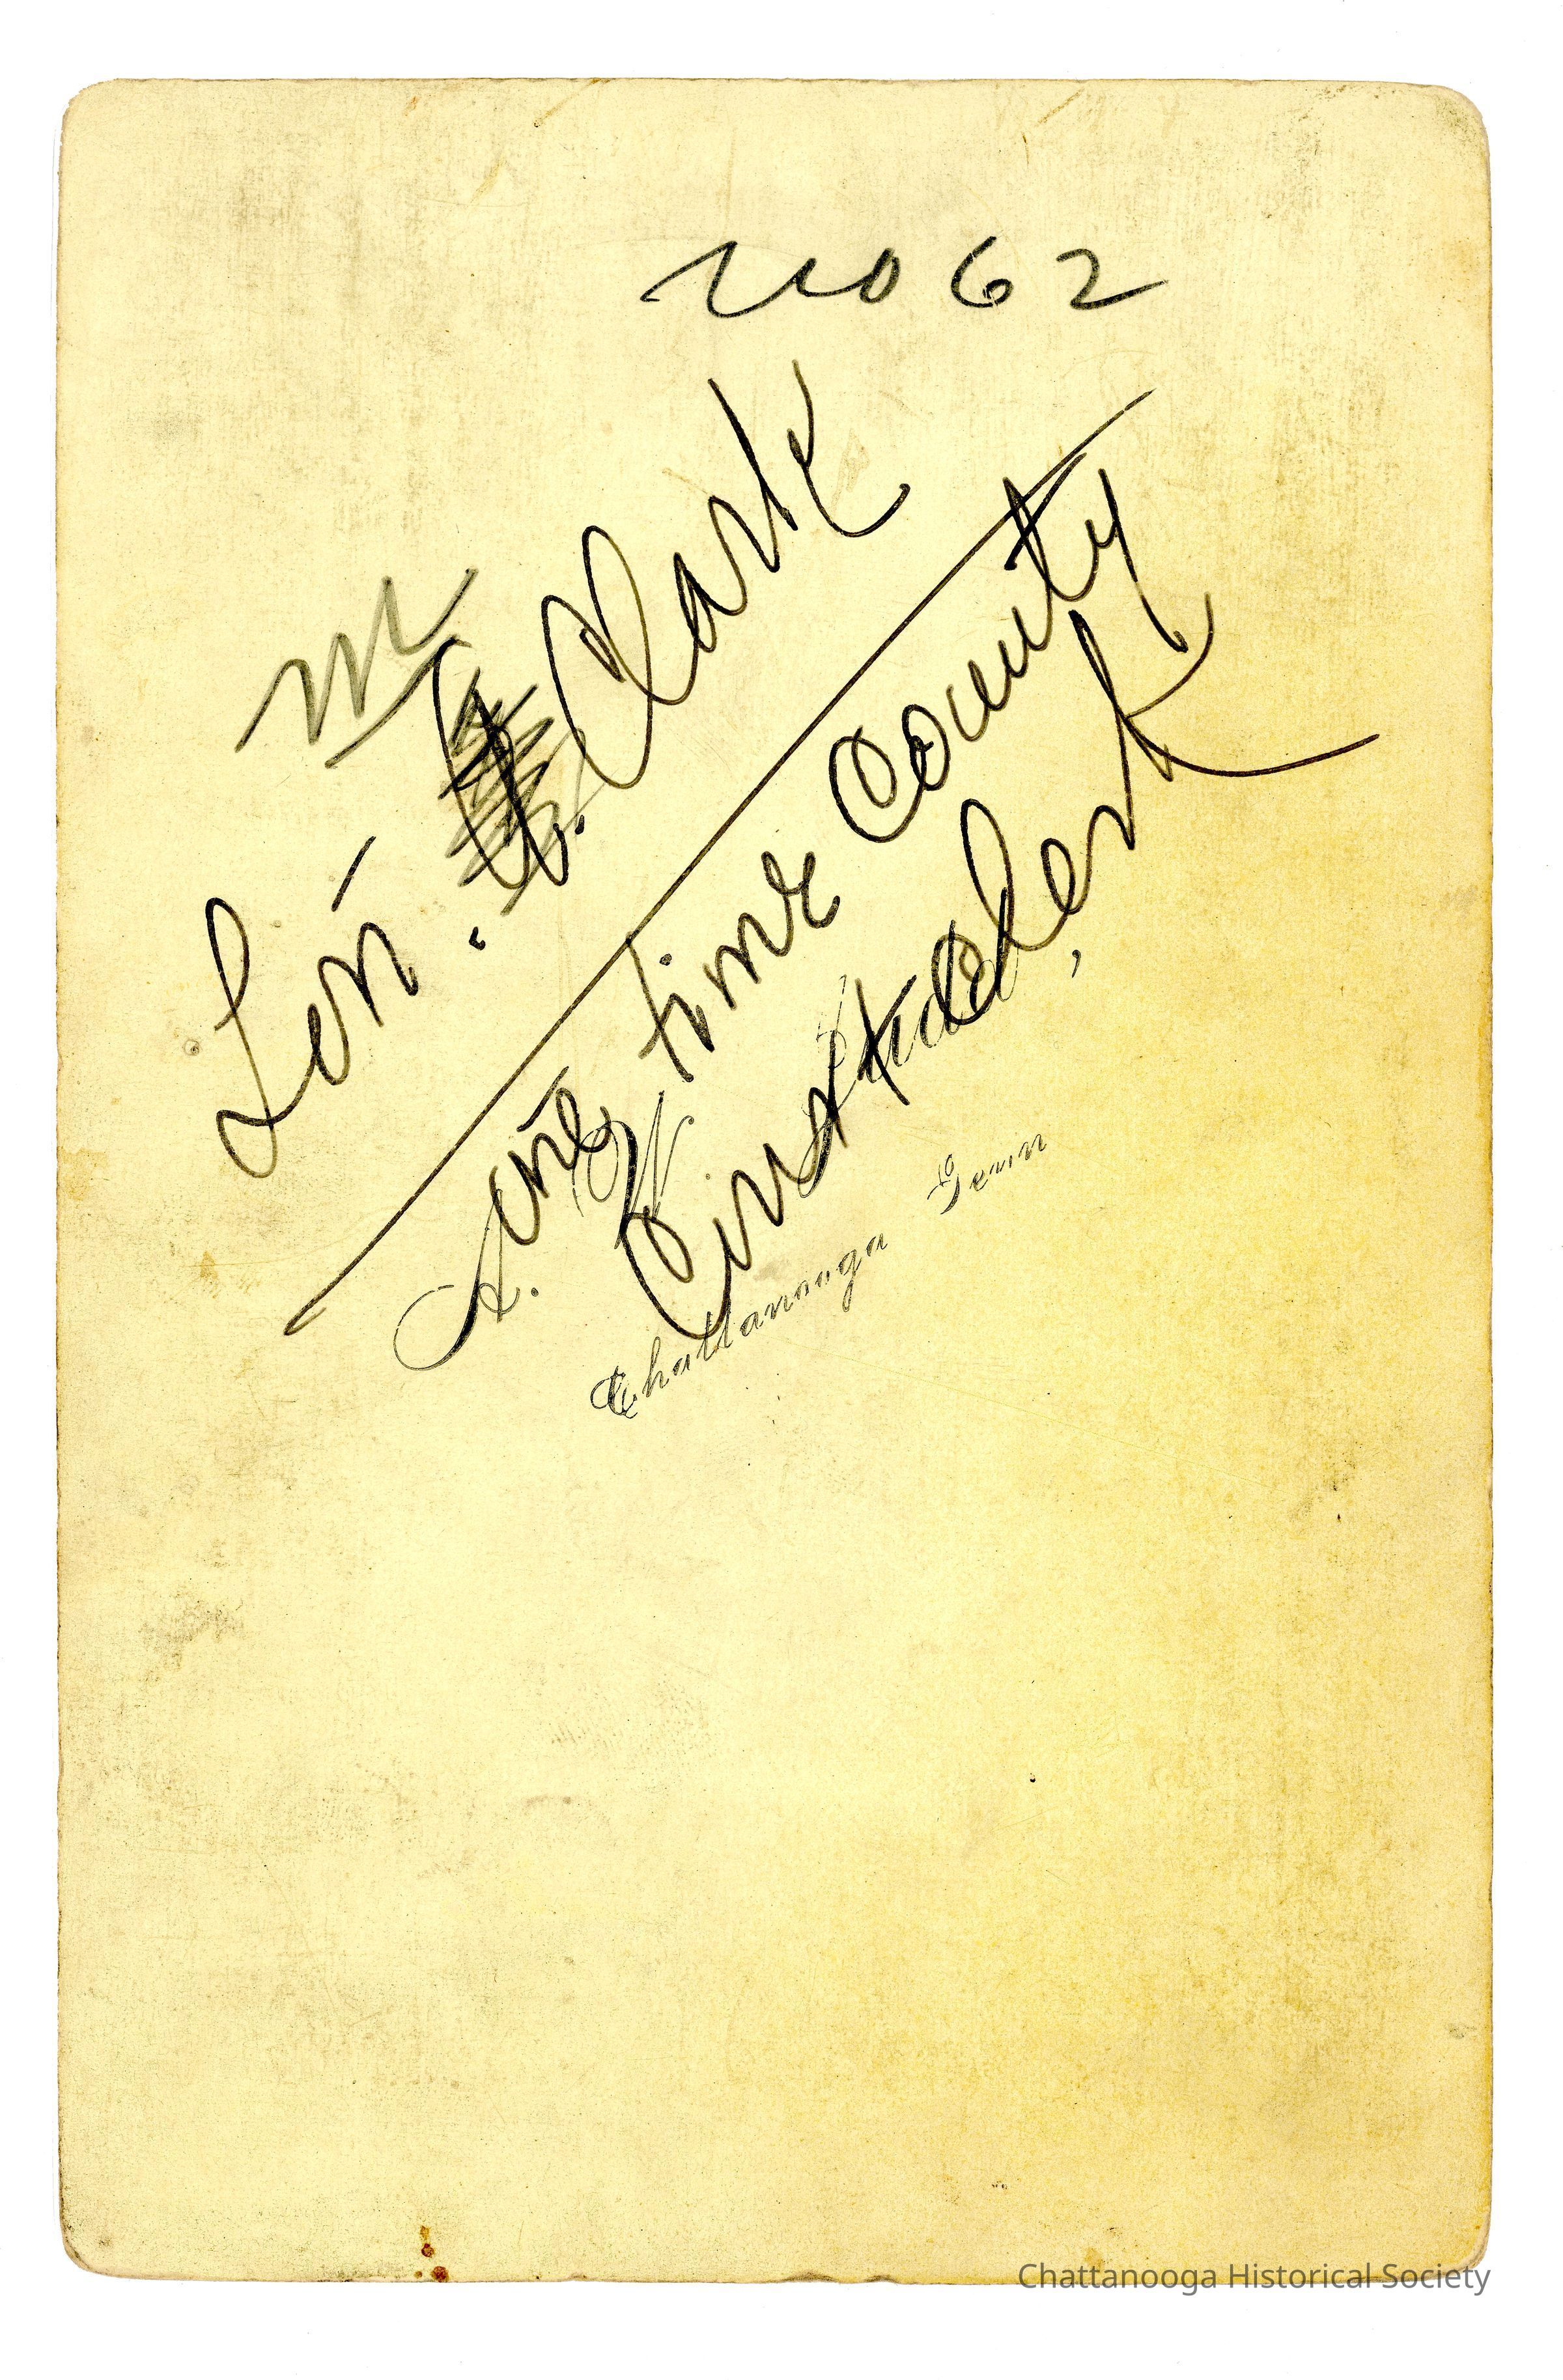 no 62
M
Len. Clark
one time County
clerk
Chattanooga Tenn
Chattanooga Historical Society